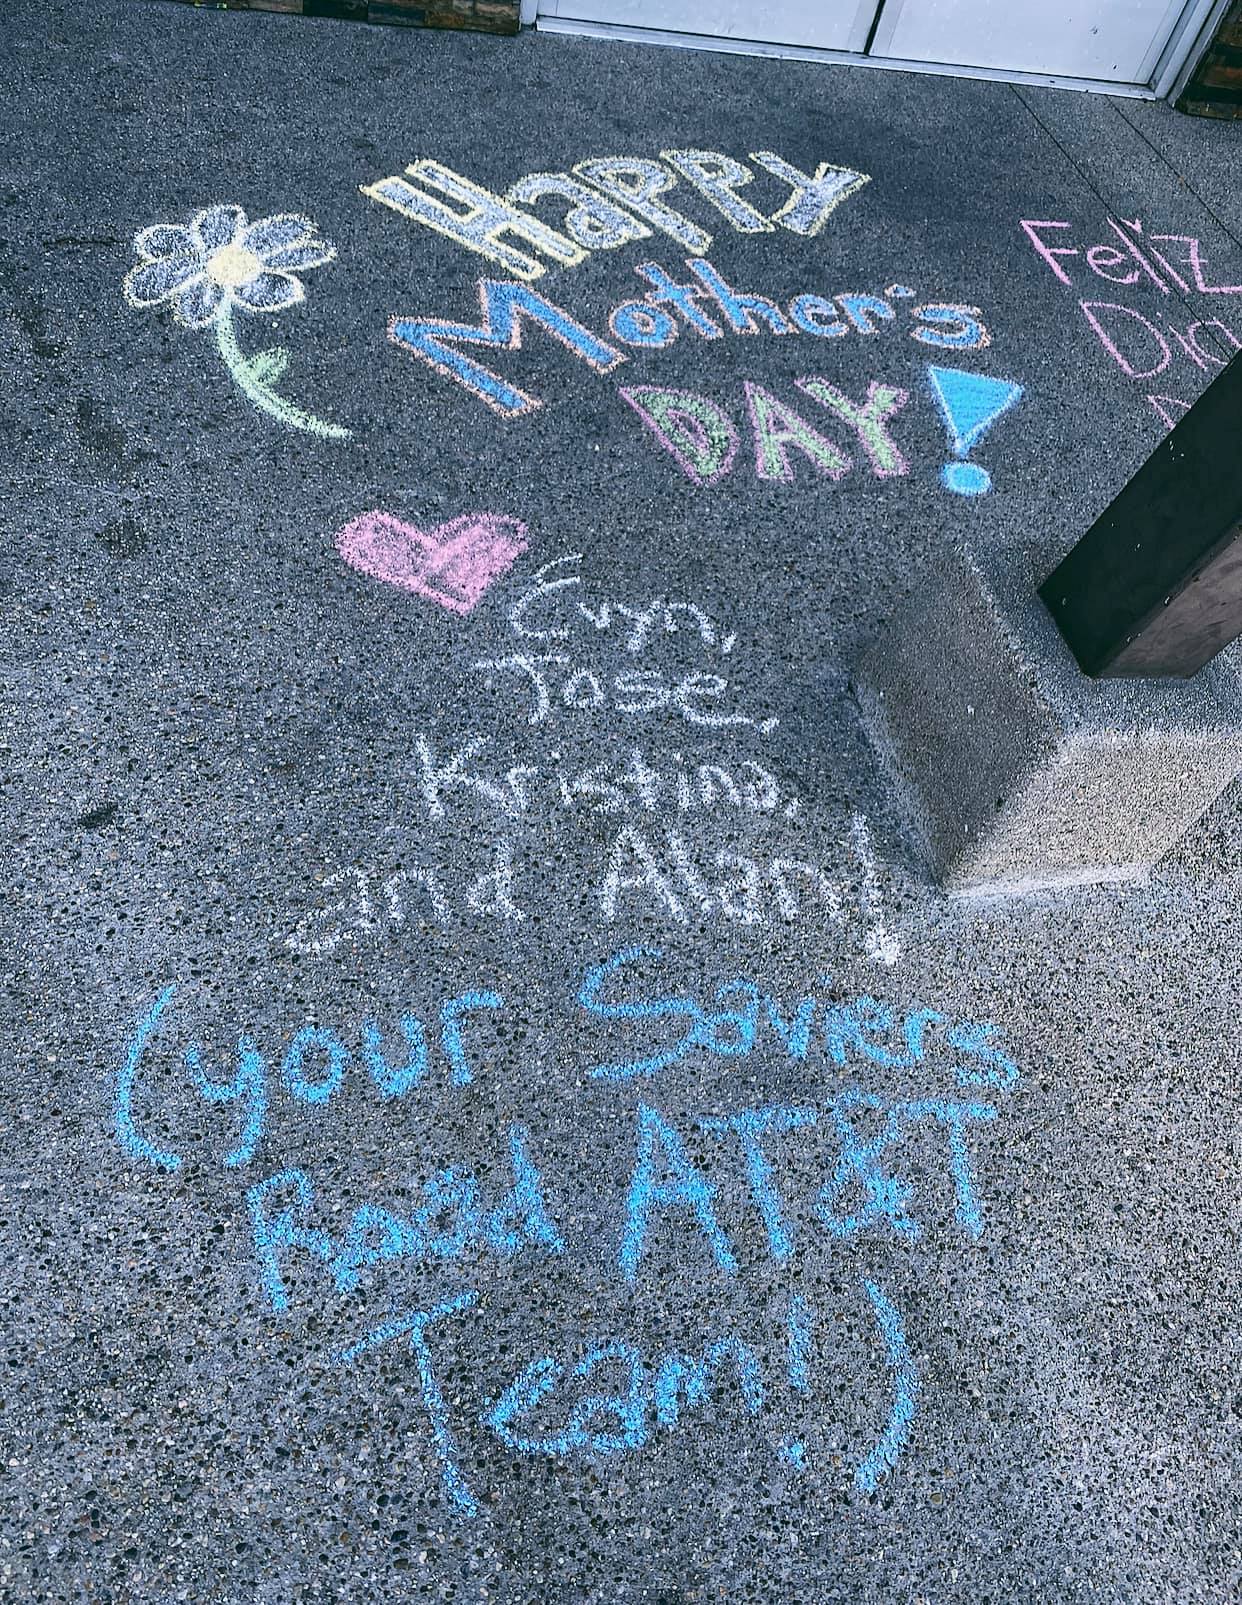 Happy
Mother's
DAY!
Feliz
Dia
Evyn,
Jose,
Kristina,
and Alan!
(your Saviers
Road AT&T
Team!)